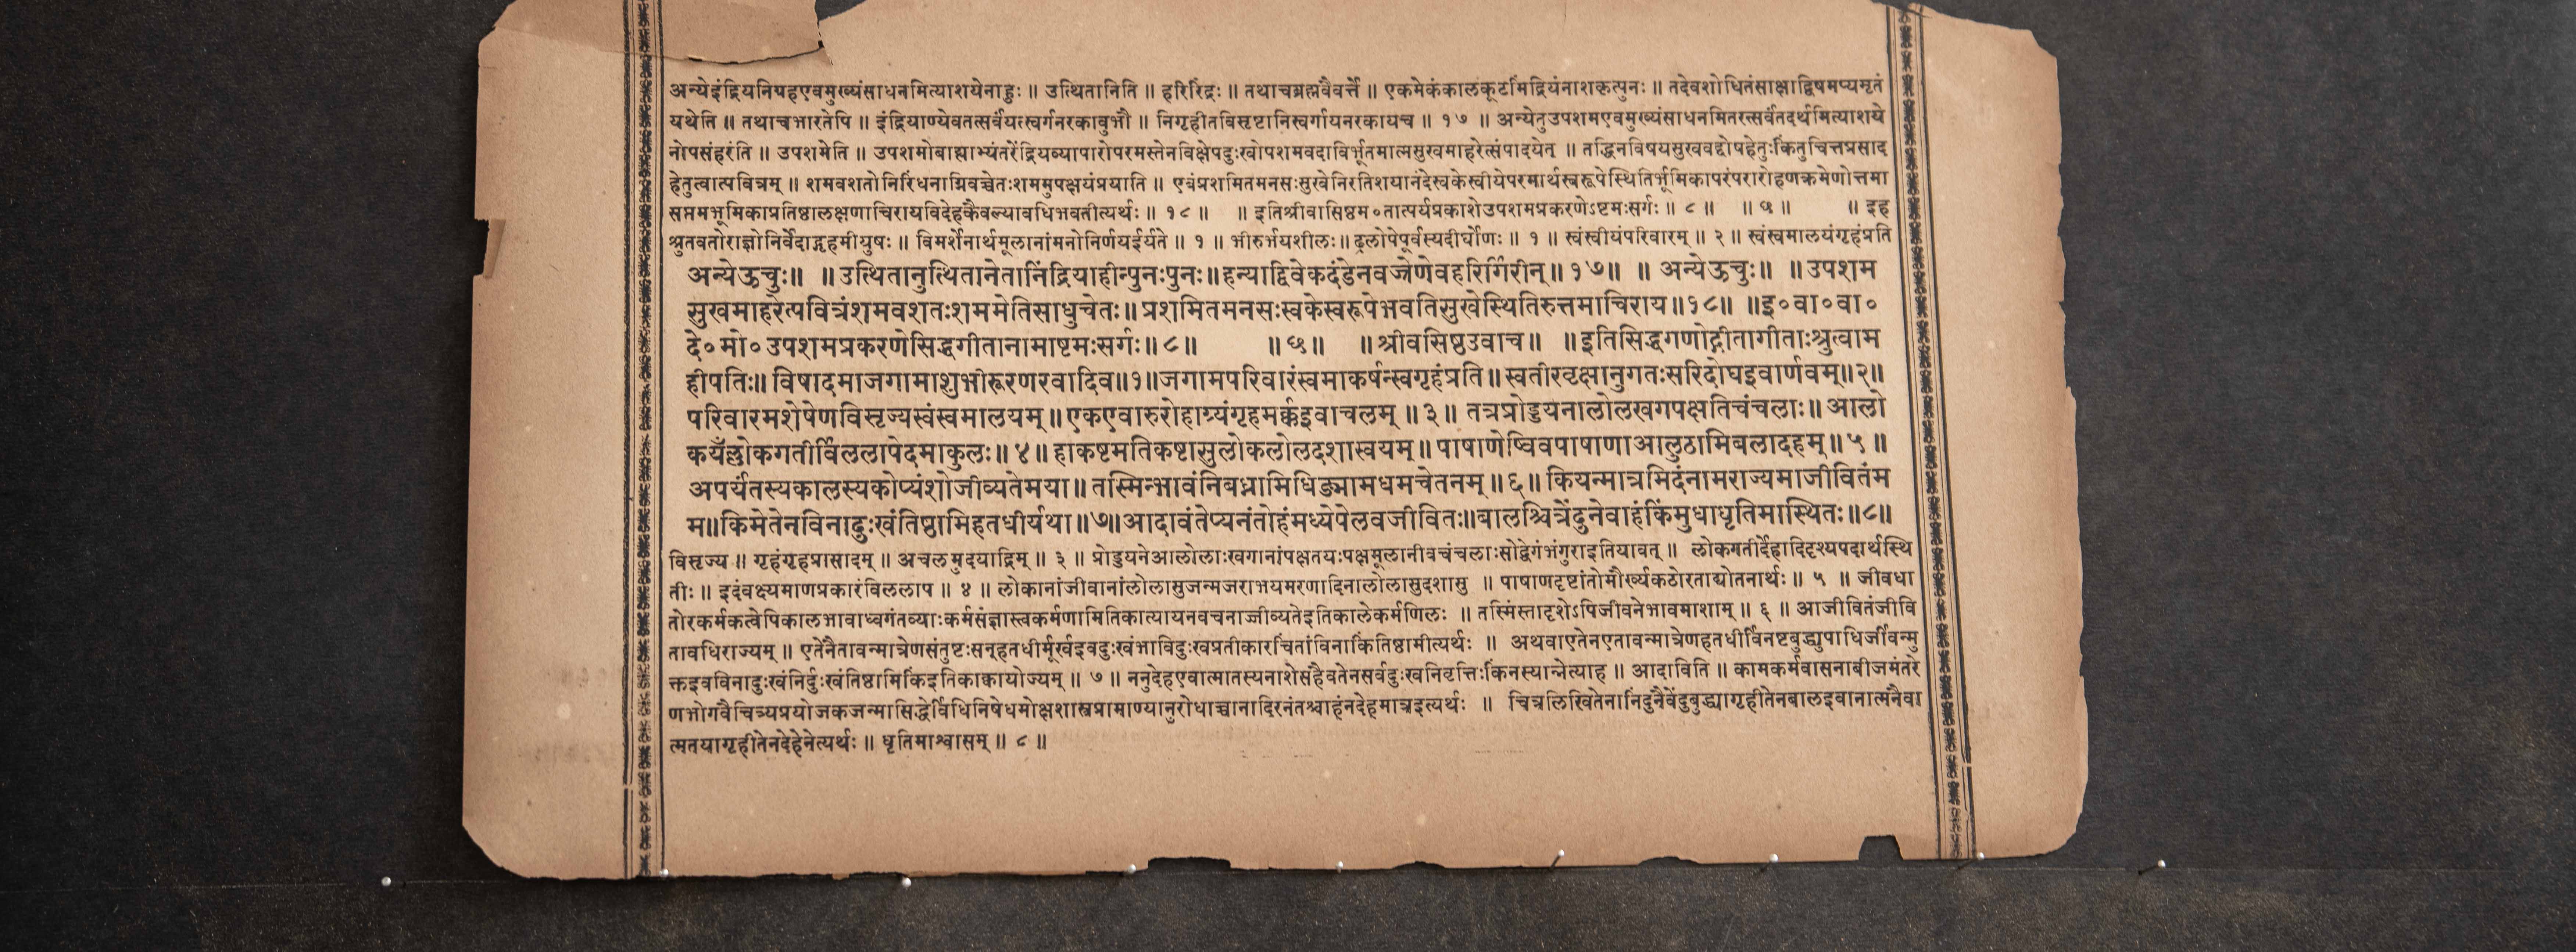 अन्येइंद्रियनिग्रहएवमुख्यंसाधनमित्याशयेनाहुः ॥ उत्थितानिति ॥ हरिरिंद्रः ॥ तथाचब्रह्मवैवर्त्ते ॥ एकमेकंकालकूटमिंद्रियंनाशकृत्पुनः ॥ तदेवशोधितंसाक्षाद्विषमप्यमृतं
यथेति ॥ तथाचभारतेपि ॥ इंद्रियाण्येवतत्सर्वंयत्स्वर्गनरकावुभौ ॥ निगृहीतविसृष्टानिस्वर्गायनरकायच ॥ १७ ॥ अन्येतुउपशमएवमुख्यंसाधनमितरत्सर्वंतदर्थमित्याशये
नोपसंहरंति ॥ उपशमेति ॥ उपशमोबाह्याभ्यंतरेंद्रियव्यापारोपरमस्तेनविक्षेपदुःखोपशमवदाविर्भूतमात्मसुखमाहरेत्संपादयेत् ॥ तद्धिनविषयसुखवद्दोषहेतुःकिंतुचित्तप्रसाद
हेतुत्वात्पवित्रम् ॥ शमवशतोनिरिंधनाग्निवच्चेतःशममुपक्षयंप्रयाति ॥ एवंप्रशमितमनसःसुखेनिरतिशयानंदेस्वकेस्वीयेपरमार्थस्वरूपेस्थितिर्भूमिकापरंपरारोहणक्रमेणोत्तमा
सप्तमभूमिकाप्रतिष्ठालक्षणाचिरायविदेहकैवल्यावधिभवतीत्यर्थः ॥ १८ ॥ ॥ इतिश्रीवासिष्ठम॰तात्पर्यप्रकाशेउपशमप्रकरणेऽष्टमःसर्गः ॥ ८ ॥ ॥ ५ ॥ ॥ इह
श्रुतवतोराज्ञोनिर्वेदाद्गृहमीयुषः ॥ विमर्शेनार्थमूलानांमनोनिर्णयईर्यते ॥ १ ॥ भीरुर्भयशीलः ॥ ढ्रलोपेपूर्वस्यदीर्घोणः ॥ १ ॥ स्वंस्वीयंपरिवारम् ॥ २ ॥ स्वंस्वमालयंगृहंप्रति
अन्येऊचुः॥ ॥उत्थितानुत्थितानेतानिंद्रियाहीन्पुनःपुनः॥हन्याद्विवेकदंडेनवज्रेणेवहरिर्गिरीन्॥१७॥ ॥ अन्येऊचुः॥ ॥उपशम
सुखमाहरेत्पवित्रंशमवशतःशममेतिसाधुचेतः॥प्रशमितमनसःस्वकेस्वरूपेभवतिसुखेस्थितिरुत्तमाचिराय॥१८॥ ॥इ॰वा॰वा॰
दे॰मो॰उपशमप्रकरणेसिद्धगीतानामाष्टमःसर्गः॥८॥ ॥५॥ ॥श्रीवसिष्ठउवाच॥ ॥इतिसिद्धगणोद्गीतागीताःश्रुत्वाम
हीपतिः॥विषादमाजगामाशुभीरूरणरवादिव॥१॥जगामपरिवारंस्वमाकर्षन्स्वगृहंप्रति॥स्वतीरवृक्षानुगतःसरिदोघइवार्णवम्॥२॥
परिवारमशेषेणविसृज्यस्वंस्वमालयम्॥एकएवारुरोहाग्र्यंगृहमर्कइवाचलम्॥३॥ तत्रप्रोड्डयनालोलखगपक्षतिचंचलाः॥आलो
कयँल्लोकगतीर्विललापेदमाकुलः॥४॥हाकष्टमतिकष्टासुलोकलोलदशास्वयम्॥पाषाणेष्विवपाषाणाआलुठामिबलादहम्॥५॥
अपर्यंतस्यकालस्यकोप्यंशोजीव्यतेमया॥तस्मिन्भावंनिबध्नामिधिङ्मामधमचेतनम्॥६॥कियन्मात्रमिदंनामराज्यमाजीवितंम
म॥किमेतेनविनादुःखंतिष्ठामिहतधीर्यथा॥७॥आदावंतेप्यनंतोहंमध्येपेलवजीवितः॥बालश्चित्रेंदुनेवाहंकिंमुधाधृतिमास्थितः॥८॥
विसृज्य ॥ गृहंगृहप्रासादम् ॥ अचलमुदयाद्रिम् ॥ ३ ॥ प्रोड्डयनेआलोलाःखगानांपक्षतयःपक्षमूलानीवचंचलाःसोद्वेगंभंगुराइतियावत् ॥ लोकगतीर्देहादिदृश्यपदार्थस्थि
तीः ॥ इदंवक्ष्यमाणप्रकारंविललाप ॥ ४ ॥ लोकानांजीवानांलोलासुजन्मजराभयमरणादिनालोलासुदशासु ॥ पाषाणदृष्टांतोमौर्ख्यकठोरताद्योतनार्थः ॥ ५ ॥ जीवधा
तोरकर्मकत्वेपिकालभावाध्वगंतव्याःकर्मसंज्ञास्त्वकर्मणामितिकात्यायनवचनाज्जीव्यतेइतिकालेकर्मणिलः ॥ तस्मिंस्तादृशेऽपिजीवनेभावमाशाम् ॥ ६ ॥ आजीवितंजीवि
तावधिराज्यम् ॥ एतेनैतावन्मात्रेणसंतुष्टःसन्हतधीर्मूर्खइवदुःखंभाविदुःखप्रतीकारचिंतांविनाकिंतिष्ठामीत्यर्थः ॥ अथवाएतेनएतावन्मात्रेणहतधीर्विनष्टबुद्ध्युपाधिर्जीवन्मु
क्तइवविनादुःखंनिर्दुःखंतिष्ठामिकिंइतिकाक्वायोज्यम् ॥ ७ ॥ ननुदेहएवात्मातस्यनाशेसहैवतेनसर्वदुःखनिवृत्तिःकिंनस्यान्नेत्याह ॥ आदाविति ॥ कामकर्मवासनाबीजमंतरे
णभोगवैचित्र्यप्रयोजकजन्मासिद्धेर्विधिनिषेधमोक्षशास्त्रप्रामाण्यानुरोधाच्चानादिरनंतश्चाहंनदेहमात्रइत्यर्थः ॥ चित्रलिखितेनानिंदुनैवेंदुबुद्ध्यागृहीतेनबालइवानात्मनैवा
त्मतयागृहीतेनदेहेनेत्यर्थः ॥ धृतिमाश्वासम् ॥ ८ ॥